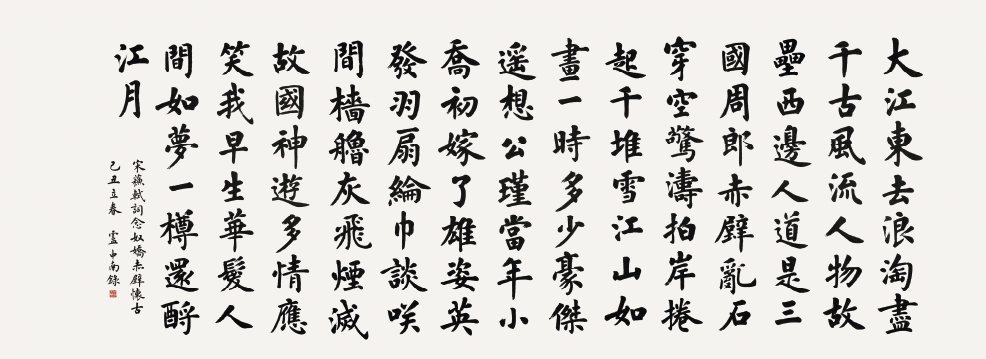 大江東去浪淘盡
千古風流人物故
壘西邊人道是三
國周郎赤壁亂石
穿空驚濤拍岸捲
起千堆雪江山如
畫一時多少豪傑
遥想公瑾當年小
喬初嫁了雄姿英
發羽扇綸巾談咲
間檣艣灰飛煙滅
故國神遊多情應
笑我早生華髮人
間如夢一樽還酹
江月
宋蘇軾詞念奴嬌赤壁懷古
己丑立春 盧中南錄